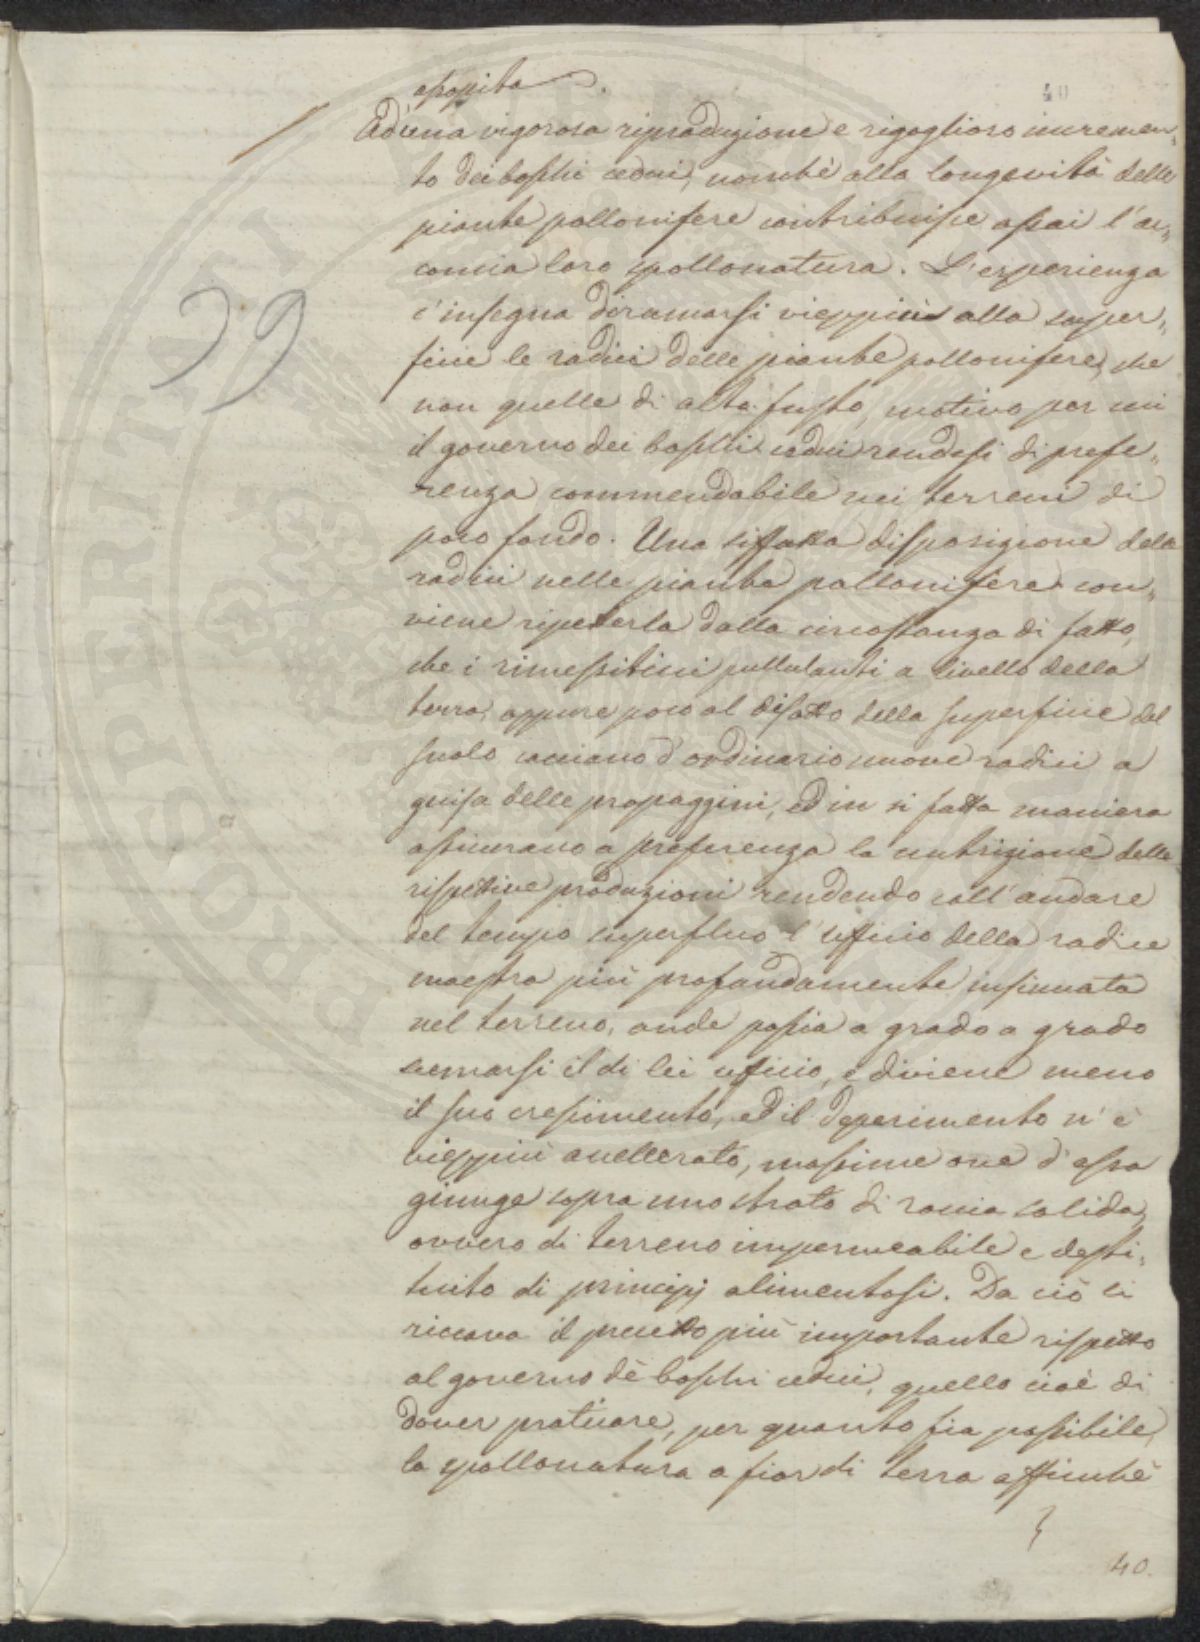 assopita.
40
Ad una vigorosa riproduzione e rigoglioso incremen„
to dei boschi cedui, nonché alla longevità delle
piante pollonifere contribuisce assai l'ac„
concia loro spollonatura. L'esperienza
c'insegna diramarsi vieppiù alla super„
ficie le radici delle piante pollonifere, che
non quelle di alto fusto, motivo per cui
il governo dei boschi cedui rendesi di prefe„
renza commendabile nei terreni di
poco fondo. Una siffatta disposizione delle
radici nelle piante pollonifere con„
viene ripeterla dalla circostanza di fatto,
che i rimessiticci pullulanti a livello della
terra, oppure poco al disotto della superficie del
suolo cacciano d'ordinario nuove radici a
guisa delle propaggini, ed in si fatta maniera
assicurano a preferenza la nutrizione delle
rispettive produzioni rendendo coll'andare
del tempo superfluo l'ufficio della radice
maestra più profondamente insinuata
nel terreno, onde passia a grado a grado
scemarsi il di lei ufficio, e diviene meno
il suo crescimento, ed il deperimento n'è
vieppiù accellerato, massime ove d'essa
giunge sopra uno strato di roccia solida,
ovvero di terreno impermeabile e desti„
tuito di principj alimentosi. Da ciò si
riccava il precetto più importante rispetto
al governo dè boschi cedui, quello cioè di
dover praticare, per quanto sia possibile,
la spollonatura a fior di terra affinché
40.
39
PROSPERITATI PUBLICAE